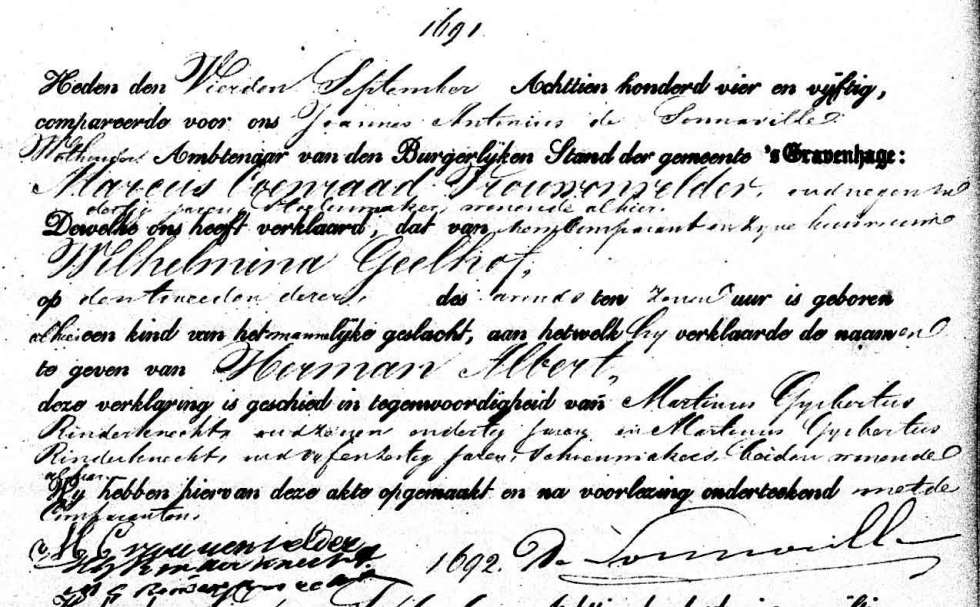 1691.
Heden den Vierden September Achttien honderd vier en vijftig,
compareerde voor ons Joannes Antonius de Sonnaville
Wethouder Ambtenaar van den Burgerlijken Stand der gemeente 's Gravenhage:
Marcus Coenraad Vrouwenvelder, oud negen en
dertig jaren, wonende alhier.
Dewelke ons heeft verklaard, dat van hem Comparant en zijne huisvrouw
Wilhelmina Geelhof,
op den tweeden dezer, des avonds ten zeven uur is geboren
alhier een kind van het mannelijke geslacht, aan hetwelk hij verklaarde de naamen
te geven van Herman Albert,
deze verklaring is geschied in tegenwoordigheid van Martinus Gysbertus
Rinderknecht, oud zeven en dertig jaren en Martinus Gysbertus
Rinderknecht, oud vijfenzestig jaren, Schoenmakers, beiden wonende
alhier.
Wij hebben hiervan deze akte opgemaakt en na voorlezing onderteekend met de
Comparanten.
M. C. vrouwenvelder
Rinderknecht
1692. De Sonnaville